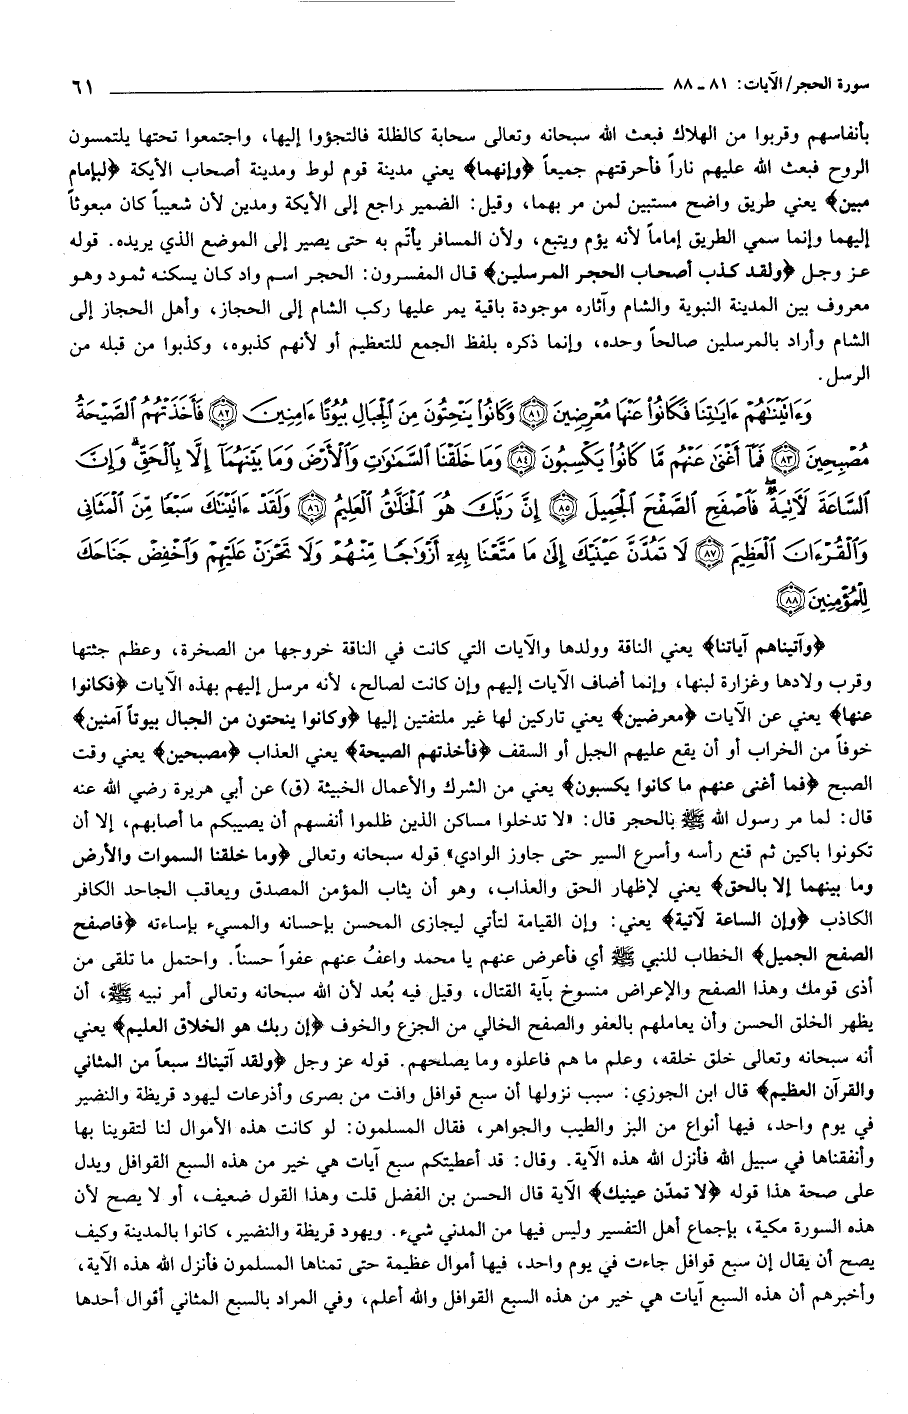 سورة الحجر/ الآيات: ٨١ ـ ٨٨ ٦١
بأنفاسهم وقربوا من الهلاك فبعث الله سبحانه وتعالى سحابة كالظلة فالتجؤوا إليها، واجتمعوا تحتها يلتمسون
الروح فبعث الله عليهم ناراً فأحرقتهم جميعاً ﴿وإنهما﴾ يعني مدينة قوم لوط ومدينة أصحاب الأيكة ﴿لبإمام
مبين﴾ يعني طريق واضح مستبين لمن مر بهما، وقيل: الضمير راجع إلى الأيكة ومدين لأن شعيباً كان مبعوثاً
إليهما وإنما سمي الطريق إماماً لأنه يؤم ويتبع، ولأن المسافر يأتم به حتى يصير إلى الموضع الذي يريده. قوله
عز وجل ﴿ولقد كذب أصحاب الحجر المرسلين﴾ قال المفسرون: الحجر اسم واد كان يسكنه ثمود وهو
معروف بين المدينة النبوية والشام وآثاره موجودة باقية يمر عليها ركب الشام إلى الحجاز، وأهل الحجاز إلى
الشام وأراد بالمرسلين صالحاً وحده، وإنما ذكره بلفظ الجمع للتعظيم أو لأنهم كذبوه، وكذبوا من قبله من
الرسل.
وَءَاتَيْنَٰهُمْ ءَايَٰتِنَا فَكَانُوا۟ عَنْهَا مُعْرِضِينَ ﴿٨١﴾ وَكَانُوا۟ يَنْحِتُونَ مِنَ ٱلْجِبَالِ بُيُوتًا ءَامِنِينَ ﴿٨٢﴾ فَأَخَذَتْهُمُ ٱلصَّيْحَةُ
مُصْبِحِينَ ﴿٨٣﴾ فَمَآ أَغْنَىٰ عَنْهُم مَّا كَانُوا۟ يَكْسِبُونَ ﴿٨٤﴾ وَمَا خَلَقْنَا ٱلسَّمَٰوَٰتِ وَٱلْأَرْضَ وَمَا بَيْنَهُمَآ إِلَّا بِٱلْحَقِّ ۗ وَإِنَّ
ٱلسَّاعَةَ لَءَاتِيَةٌ ۖ فَٱصْفَحِ ٱلصَّفْحَ ٱلْجَمِيلَ ﴿٨٥﴾ إِنَّ رَبَّكَ هُوَ ٱلْخَلَّٰقُ ٱلْعَلِيمُ ﴿٨٦﴾ وَلَقَدْ ءَاتَيْنَٰكَ سَبْعًا مِّنَ ٱلْمَثَانِى
وَٱلْقُرْءَانَ ٱلْعَظِيمَ ﴿٨٧﴾ لَا تَمُدَّنَّ عَيْنَيْكَ إِلَىٰ مَا مَتَّعْنَا بِهِۦٓ أَزْوَٰجًا مِّنْهُمْ وَلَا تَحْزَنْ عَلَيْهِمْ وَٱخْفِضْ جَنَاحَكَ
لِلْمُؤْمِنِينَ ﴿٨٨﴾
﴿وآتيناهم آياتنا﴾ يعني الناقة وولدها والآيات التي كانت في الناقة خروجها من الصخرة، وعظم جثتها
وقرب ولادها وغزارة لبنها، وإنما أضاف الآيات إليهم وإن كانت لصالح، لأنه مرسل إليهم بهذه الآيات ﴿فكانوا
عنها﴾ يعني عن الآيات ﴿معرضين﴾ يعني تاركين لها غير ملتفتين إليها ﴿وكانوا ينحتون من الجبال بيوتاً آمنين﴾
خوفاً من الخراب أو أن يقع عليهم الجبل أو السقف ﴿فأخذتهم الصيحة﴾ يعني العذاب ﴿مصبحين﴾ يعني وقت
الصبح ﴿فما أغنى عنهم ما كانوا يكسبون﴾ يعني من الشرك والأعمال الخبيثة (ق) عن أبي هريرة رضي الله عنه
قال: لما مر رسول الله ﷺ بالحجر قال: «لا تدخلوا مساكن الذين ظلموا أنفسهم أن يصيبكم ما أصابهم، إلا أن
تكونوا باكين ثم قنع رأسه وأسرع السير حتى جاوز الوادي». قوله سبحانه وتعالى ﴿وما خلقنا السموات والأرض
وما بينهما إلا بالحق﴾ يعني لإظهار الحق والعذاب، وهو أن يثاب المؤمن المصدق ويعاقب الجاحد الكافر
الكاذب ﴿وإن الساعة لآتية﴾ يعني: وإن القيامة لتأتي ليجازى المحسن بإحسانه والمسيء بإساءته ﴿فاصفح
الصفح الجميل﴾ الخطاب للنبي ﷺ أي فأعرض عنهم يا محمد واعفُ عنهم عفواً حسناً. واحتمل ما تلقى من
أذى قومك وهذا الصفح والإعراض منسوخ بآية القتال، وقيل فيه بُعد لأن الله سبحانه وتعالى أمر نبيه ﷺ، أن
يظهر الخلق الحسن وأن يعاملهم بالعفو والصفح الخالي من الجزع والخوف ﴿إن ربك هو الخلاق العليم﴾ يعني
أنه سبحانه وتعالى خلق خلقه، وعلم ما هم فاعلوه وما يصلحهم. قوله عز وجل ﴿ولقد آتيناك سبعاً من المثاني
والقرآن العظيم﴾ قال ابن الجوزي: سبب نزولها أن سبع قوافل وافت من بصرى وأذرعات ليهود قريظة والنضير
في يوم واحد، فيها أنواع من البز والطيب والجواهر، فقال المسلمون: لو كانت هذه الأموال لنا لتقوينا بها
وأنفقناها في سبيل الله فأنزل الله هذه الآية. وقال: قد أعطيتكم سبع آيات هي خير من هذه السبع القوافل ويدل
على صحة هذا قوله ﴿لا تمدّن عينيك﴾ الآية قال الحسن بن الفضل قلت وهذا القول ضعيف، أو لا يصح لأن
هذه السورة مكية، بإجماع أهل التفسير وليس فيها من المدني شيء. ويهود قريظة والنضير، كانوا بالمدينة وكيف
يصح أن يقال إن سبع قوافل جاءت في يوم واحد، فيها أموال عظيمة حتى تمناها المسلمون فأنزل الله هذه الآية،
وأخبرهم أن هذه السبع آيات هي خير من هذه السبع القوافل والله أعلم، وفي المراد بالسبع المثاني أقوال أحدها